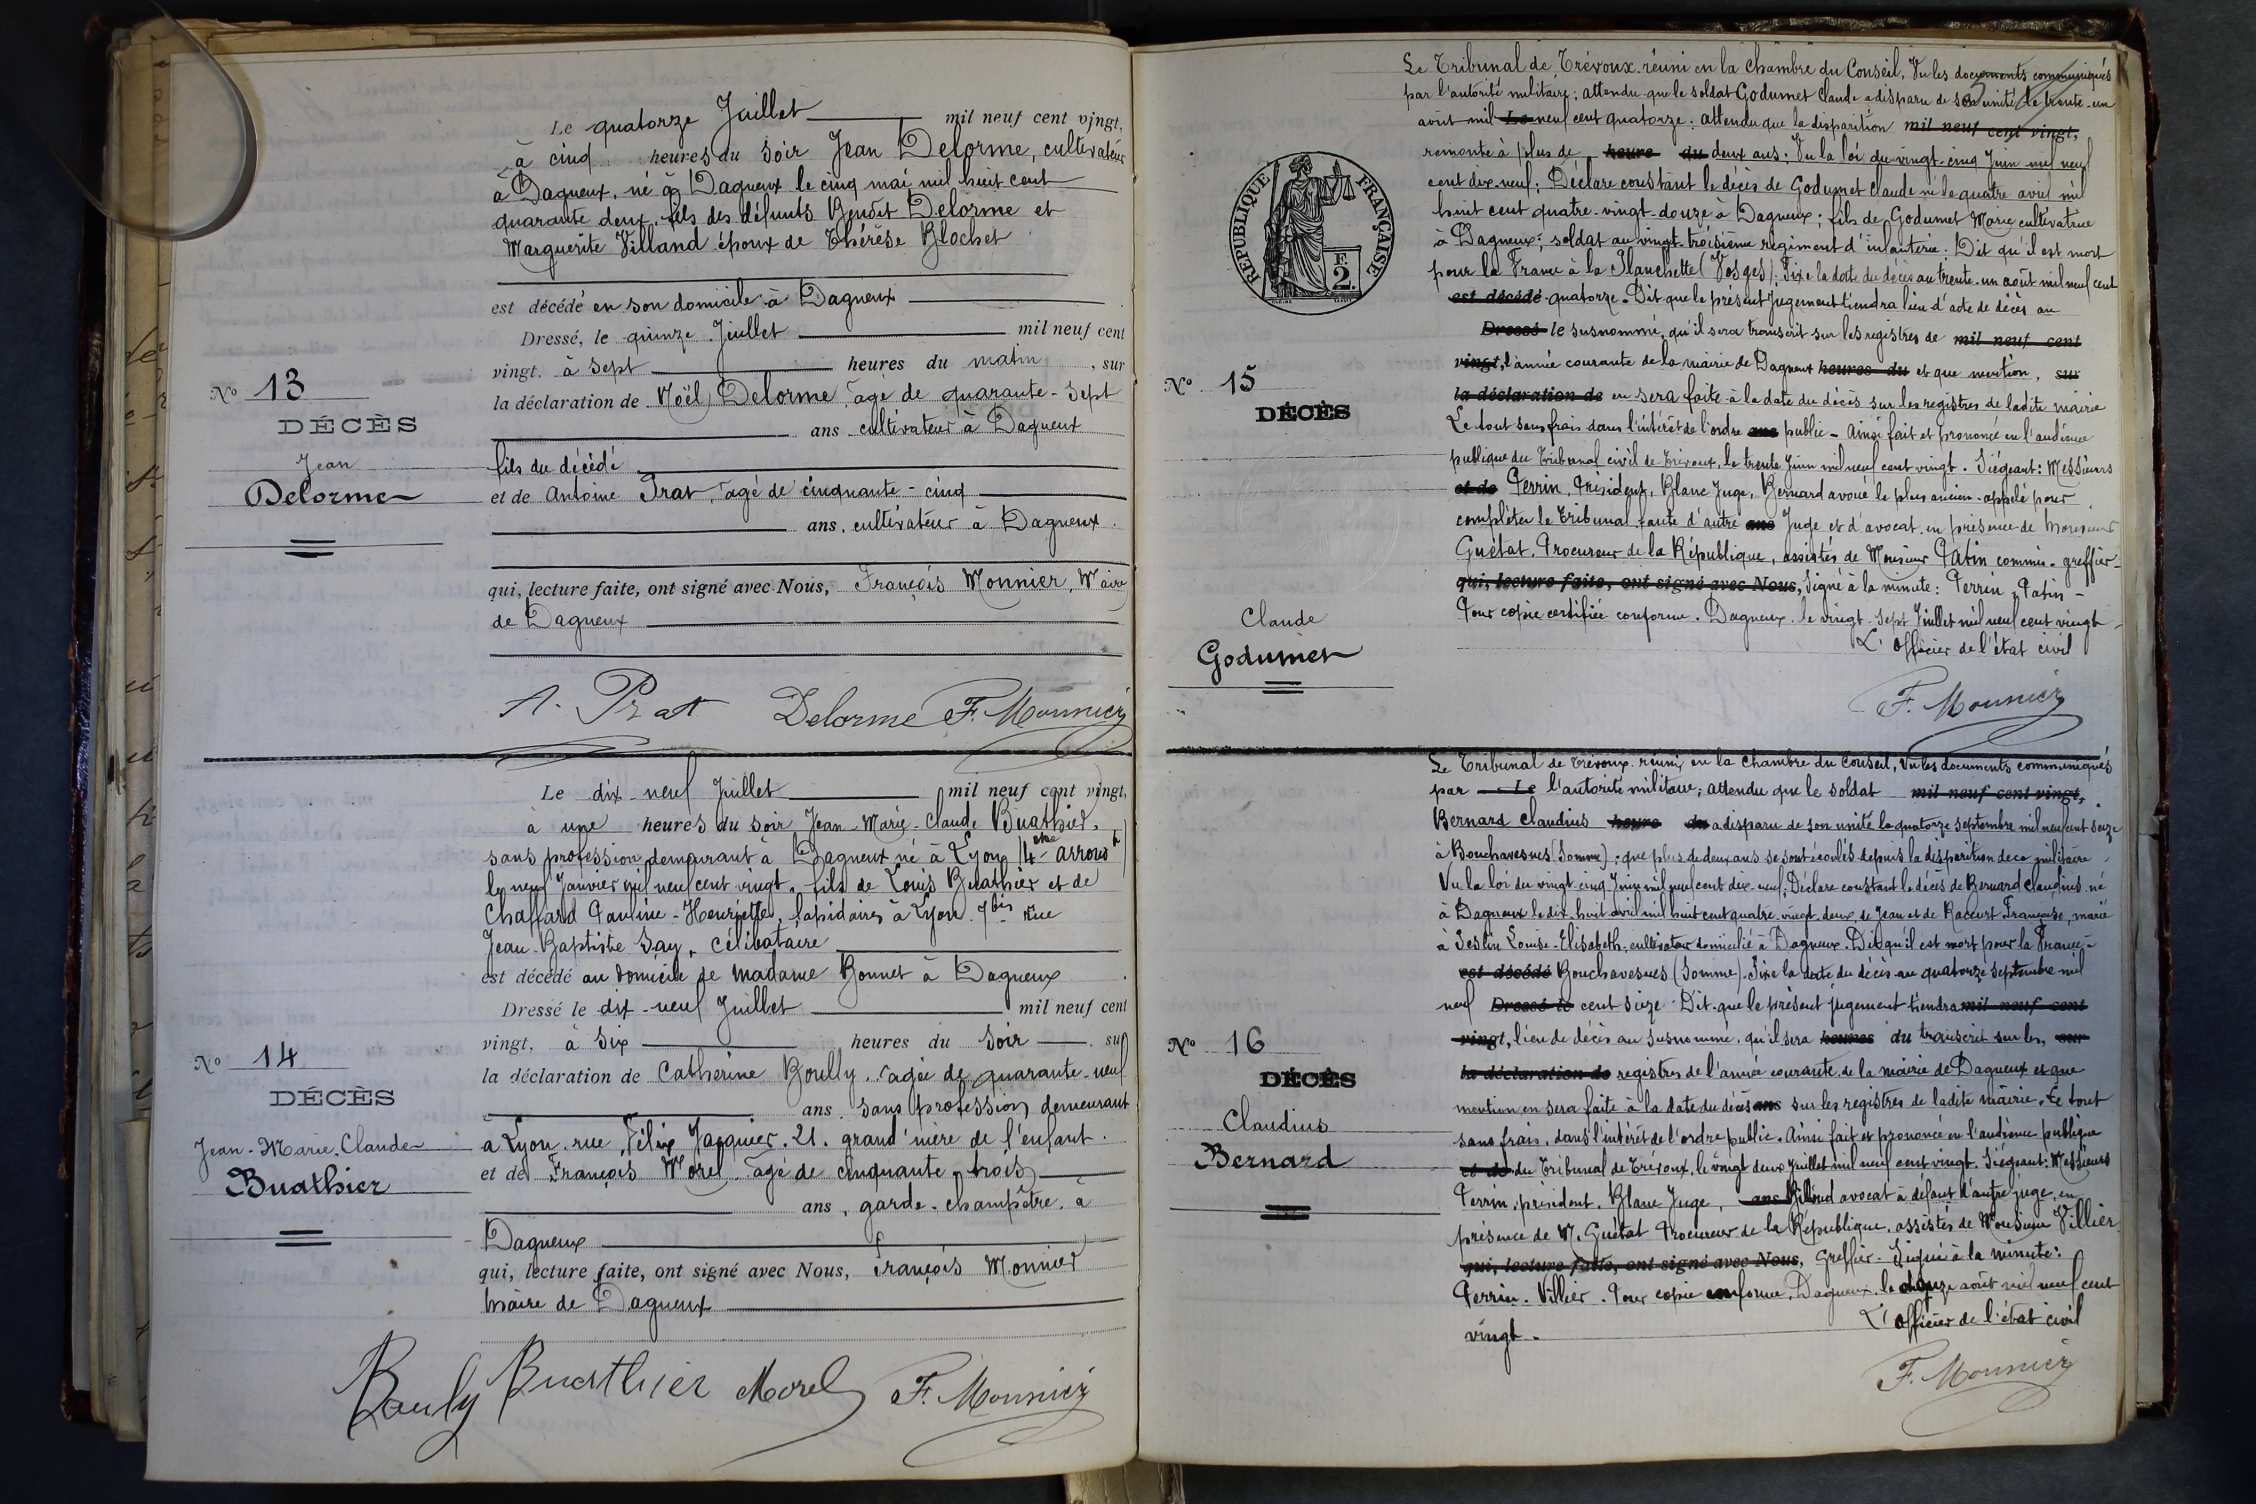 Le quatorze Juillet mil neuf cent vingt,
à cinq heures du soir Jean Delorme, cultivateur
à Dagneux, né à Dagneux le cinq mai mil huit cent
quarante deux, fils des défunts Benoît Delorme et
Marguerite Villand époux de Thérèse Blochet
est décédé en son domicile à Dagneux
Dressé, le quinze Juillet mil neuf cent
vingt. à sept heures du matin, sur
la déclaration de Noël Delorme, âgé de quarante-sept
ans cultivateur à Dagneux
fils du décédé
et de Antoine Prat, âgé de cinquante-cinq
ans, cultivateur à Dagneux.
qui, lecture faite, ont signé avec Nous, François Monnier, Maire
de Dagneux
No 13
DÉCÈS
Jean
Delorme
A. Prat Delorme F. Monnier
Le dix-neuf Juillet mil neuf cent vingt,
à une heures du soir Jean-Marie-Claude Buathier,
sans profession demeurant à Dagneux né à Lyon 4eme arrond
le neuf Janvier mil neuf cent vingt, fils de Louis Buathier et de
Chaffard Pauline-Henriette, lapidaires à Lyon 7bis rue
Jean-Baptiste Say, célibataire
est décédé au domicile de Madame Bonnet à Dagneux
Dressé le dix-neuf Juillet mil neuf cent
vingt, à six heures du soir, sur
la déclaration de Catherine Boully, âgée de quarante-neuf
ans, sans profession, demeurant
à Lyon, rue Félix Jacquier, 21. grand'mère de l'enfant.
et de François Morel âgé de cinquante-trois
ans, garde-champêtre à
Dagneux
qui, lecture faite, ont signé avec Nous, François Monnier
Maire de Dagneux
No 14
DÉCÈS
Jean-Marie, Claude
Buathier
Bouly Buathier Morel F. Monnier
Le Tribunal de Trévoux réuni en la Chambre du Conseil, Vu les documents communiqués
par l'autorité militaire; attendu que le soldat Godumet Claude a disparu de son unité le trente-un
août mil Le neuf cent quatorze; attendu que la disparition mil neuf cent vingt,
remonte à plus de heure du deux ans; Vu la loi du vingt-cinq Juin mil neuf
cent dix-neuf; Déclare constant le décès de Godumet Claude né le quatre avril mil
huit cent quatre-vingt-douze à Dagneux; fils de Godumet Marie cultivatrice
à Dagneux; soldat au vingt-troisième régiment d'infanterie. Dit qu'il est mort
pour la France à la Planchette (Vosges); Fixe la date du décès au trente-un août mil neuf cent
est décédé quatorze. Dit que le présent jugement tiendra lieu d'acte de décès au
Dressé le susnommé, qu'il sera transcrit sur les registres de mil neuf cent
vingt, l'année courante de la mairie de Dagneux heures du et que mention, sur
la déclaration de en sera faite à la date du décès sur les registres de ladite mairie
Le tout sans frais dans l'intérêt de l'ordre ans public - Ainsi fait et prononcé en l'audience
publique du Tribunal civil de Trévoux, le trente Juin mil neuf cent vingt. Siégeant: Messieurs
et de Perrin, Président, Blanc Juge, Bernard avoué le plus ancien appelé pour
compléter le Tribunal faute d'autre ans Juge et d'avocat en présence de Monsieur
Guétat, Procureur de la République, assistés de Monsieur Patin commis-greffier-
qui, lecture faite, ont signé avec Nous, Signé à la minute: Perrin, Patin -
Pour copie certifiée conforme. Dagneux le vingt-sept Juillet mil neuf cent vingt
L'officier de l'état civil
RÉPUBLIQUE FRANÇAISE
F.
2.
No 15
DÉCÈS
Claude
Godumet
F. Monnier
Le Tribunal de Trévoux réuni, en la Chambre du Conseil, Vu les documents communiqués
par Le l'autorité militaire; attendu que le soldat mil neuf cent vingt,
Bernard Claudius heure du a disparu de son unité le quatorze septembre mil neuf cent seize
à Bouchavesnes (Somme); que plus de deux ans se sont écoulés depuis la disparition de ce militaire
Vu la loi du vingt-cinq Juin mil neuf cent dix-neuf; Déclare constant le décès de Bernard Claudius né
à Dagneux le dix-huit avril mil huit cent quatre-vingt-deux, de Jean et de Françoise, marié
à Louise-Elisabeth, cultivateur domicilié à Dagneux. Dit qu'il est mort pour la France à
est décédé Bouchavesnes (Somme). Fixe la date du décès au quatorze septembre mil
neuf Dressé le cent seize. Dit que le présent jugement tiendra mil neuf cent
vingt, lieu de décès au susnommé, qu'il sera heures du transcrit sur les, sur
la déclaration de registres de l'année courante de la mairie de Dagneux et que
mention en sera faite à la date du décès ans sur les registres de ladite mairie. Le tout
sans frais, dans l'intérêt de l'ordre public. Ainsi fait et prononcé en l'audience publique
et de du Tribunal de Trévoux, le vingt deux Juillet mil neuf cent vingt. Siégeant: Messieurs
Perrin, président, Blanc Juge, ans avocat à défaut d'autre juge, en
présence de M. Guétat Procureur de la République, assistés de Monsieur Villier
qui, lecture faite, ont signé avec Nous, Greffier. Signé à la minute:
Perrin. Villier. Pour copie conforme, Dagneux, le août mil neuf cent
vingt. L'officier de l'état civil
No 16
DÉCÈS
Claudius
Bernard
F. Monnier